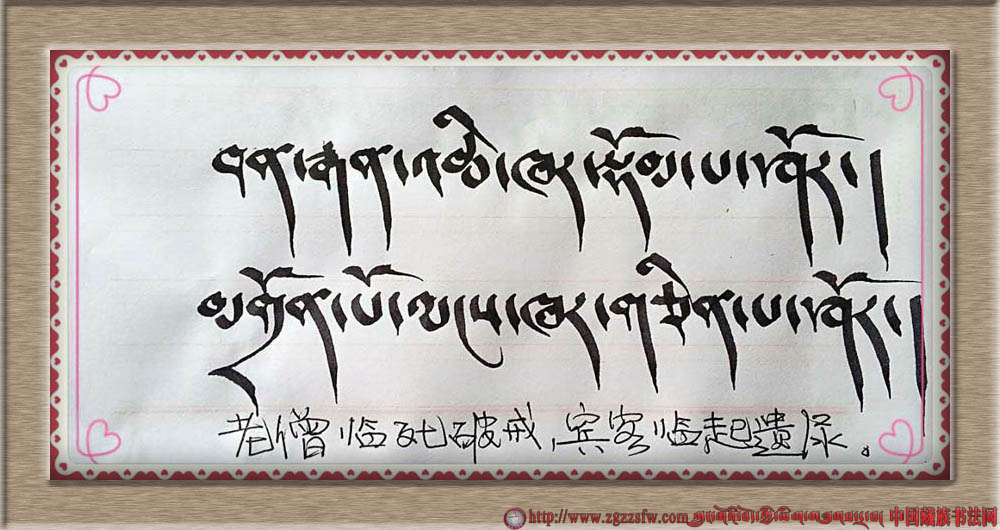 བན་རྒན་འཆི་ཁར་སྡོམ་པ་ཤོར།།
མགྲོན་པོ་ ཁར་གཅིན་པ་ཤོར།།
老僧临死破戒，宾客临起遗尿。
http://www.zgzzsfw.com 中国藏族书法网